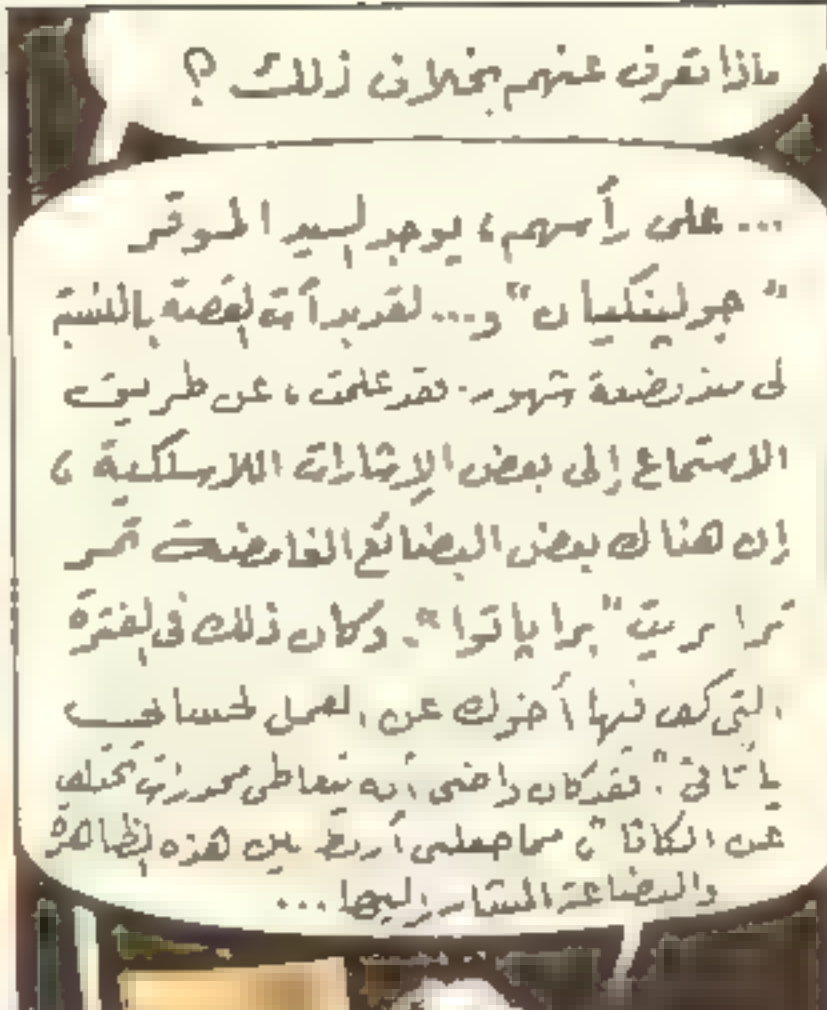 ماذا تعرف عنهم بخلاف ذلك ؟
... على رأسهم، يوجد السيد الموقر
"جولبنكيان" و... لقد بدأت القصة بالنسبة
لى منذ بضعة شهور. فقد علمت، عن طريق
الاستماع إلى بعض الإشارات اللاسلكية،
إن هناك بعض البضائع الغامضة تمر
ترا بريت "برا باتوا". وكان ذلك فى الفترة
التى كف فيها أخوك عن العمل لحسابى
فقد كان واضحى أنه يتعاطى مخدرات تختلف
عن "الكاتا"، مما جعلنى أربط بين هذه الظاهرة
والبضاعة المشار إليها...